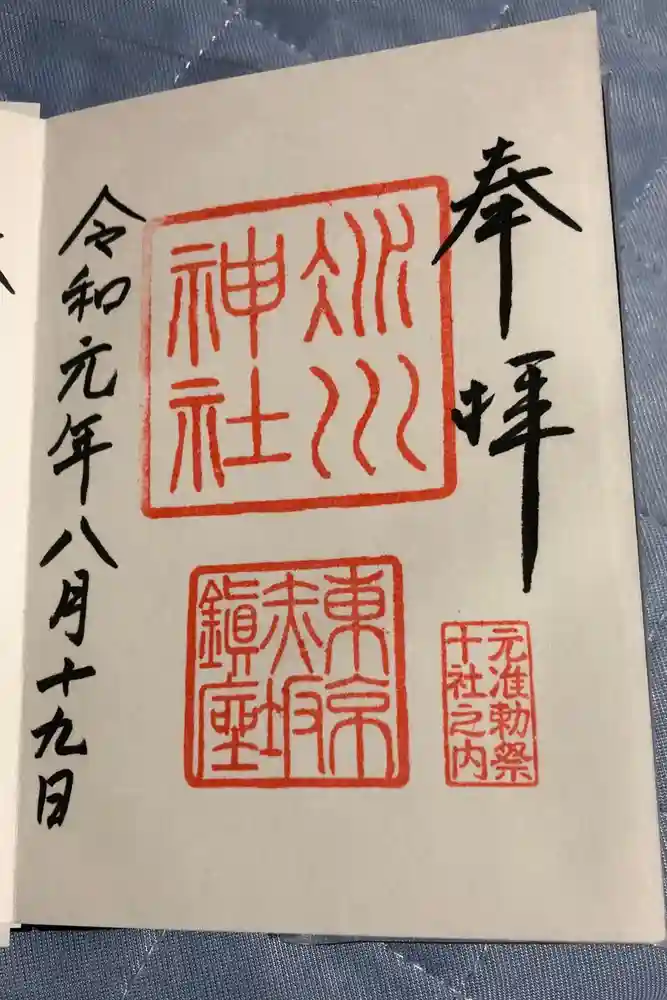 奉拝
氷川
神社
東京
赤坂
鎮座
元准勅祭
十社之内
令和元年八月十九日